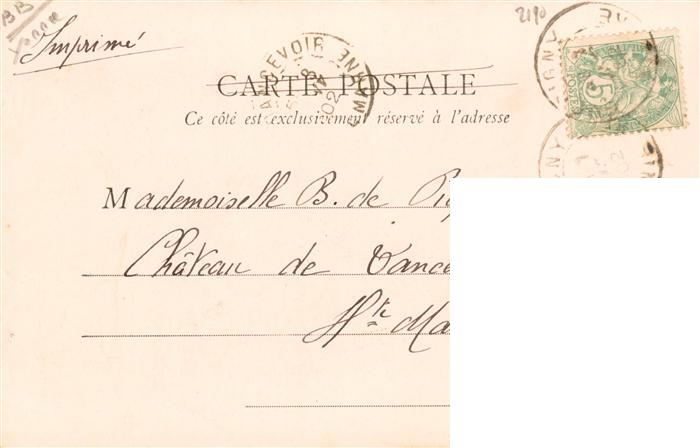 BB
2190
Imprimé
CARTE POSTALE
Ce côté est exclusivement réservé à l'adresse
5
02
Mademoiselle B. de
Château de Vance
Hte Ma